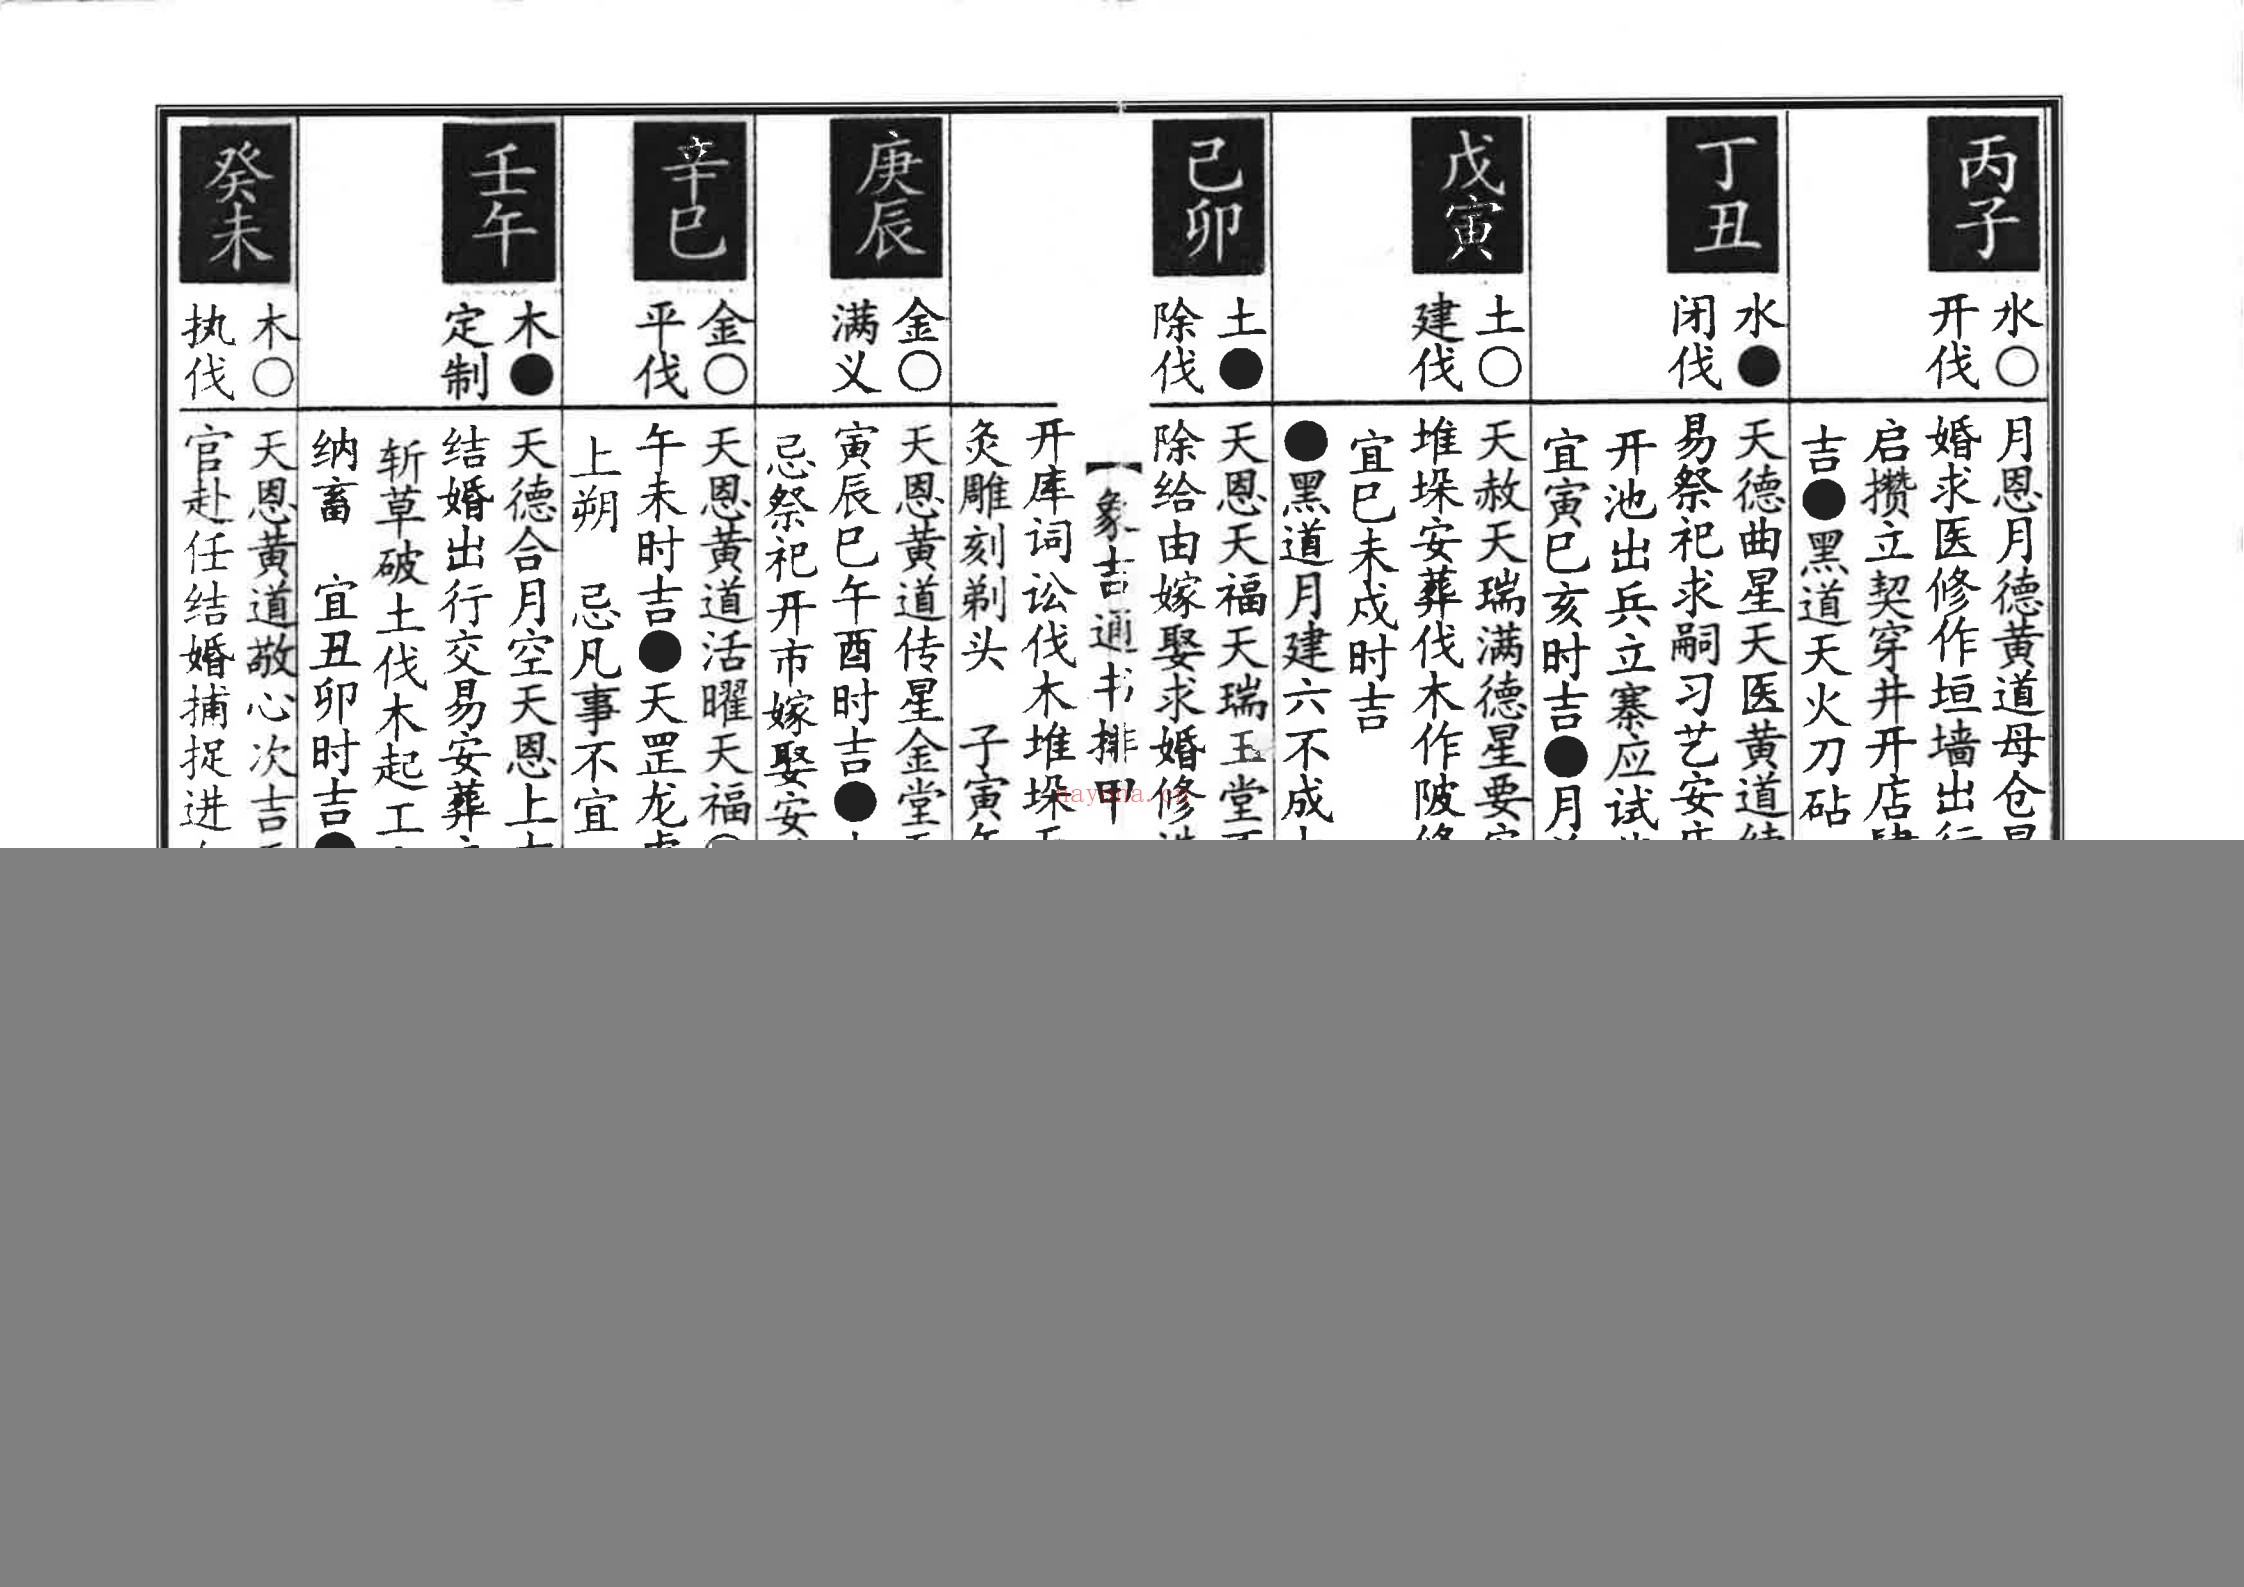 丙子
水○
开伐
月恩月德黄道母仓
婚求医修作垣墙出行
启攒立契穿井开店
吉●黑道天火刀砧
丁丑
水●
闭伐
天德曲星天医黄道
易祭祀求嗣习艺安
开池出兵立寨应试
宜寅巳亥时吉●月
戊寅
土○
建伐
天赦天瑞满德星要
堆垛安葬伐木作陂
宜巳未戌时吉
●黑道月建六不成
己卯
土●
除伐
天恩天福天瑞玉堂
除给由嫁娶求婚修
【象吉通书排甲
开库词讼伐木堆垛
灸雕刻剃头 子寅
庚辰
金○
满义
天恩黄道传星金堂
寅辰巳午酉时吉●
忌祭祀开市嫁娶安
辛巳
金○
平伐
天恩黄道活曜天福
午未时吉●天罡龙虎
上朔 忌凡事不宜
壬午
木●
定制
天德合月空天恩上
结婚出行交易安葬
斩草破土伐木起工
纳畜 宜丑卯时吉●
癸未
木○
执伐
天恩黄道敬心次吉
官赴任结婚捕捉进
nayona.cn